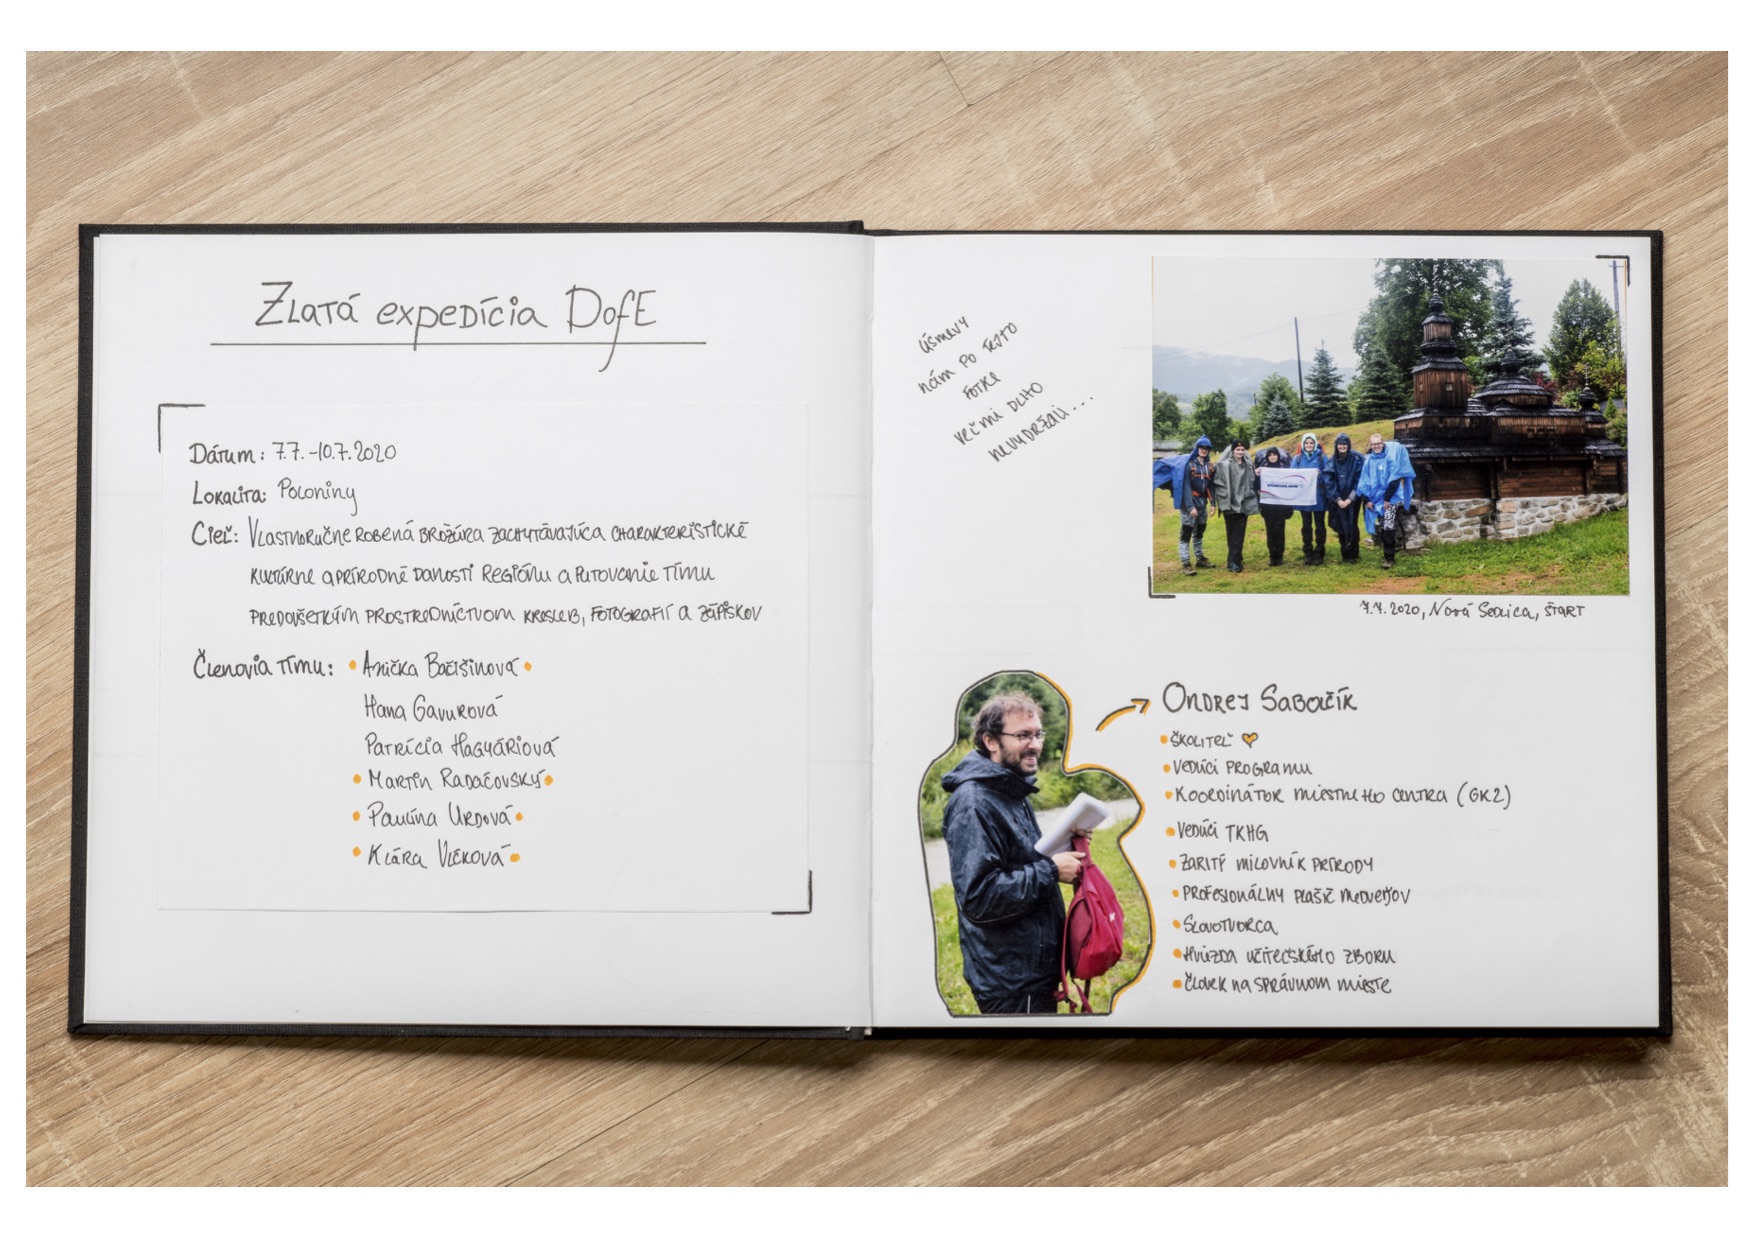 Zlatá expedícia DofE
Dátum: 7.7.-10.7.2020
Lokalita: Poloniny
Cieľ: Vlastnoručne robená brožúra zachytávajúca charakteristické
kultúrne a prírodné danosti regiónu a putovanie tímu
predovšetkým prostredníctvom kresieb, fotografií a zápiskov
Členovia tímu: • Anička Bačišinová •
Hana Gavurová
Patrícia Hagyáriová
• Martin Radačovský •
• Paulína Urdová •
• Klára Vlčková •
úsmevy
nám po tejto
fotke
veľmi dlho
nevydržali...
7.7.2020, Nová Sedlica, štart
Ondrej Sabolčík
• školiteľ
• vedúci programu
• koordinátor miestneho centra (GK2)
• vedúci TKHG
• zarytý milovník prírody
• profesionálny plašič medveďov
• slovotvorca
• hviezda učiteľského zboru
• človek na správnom mieste